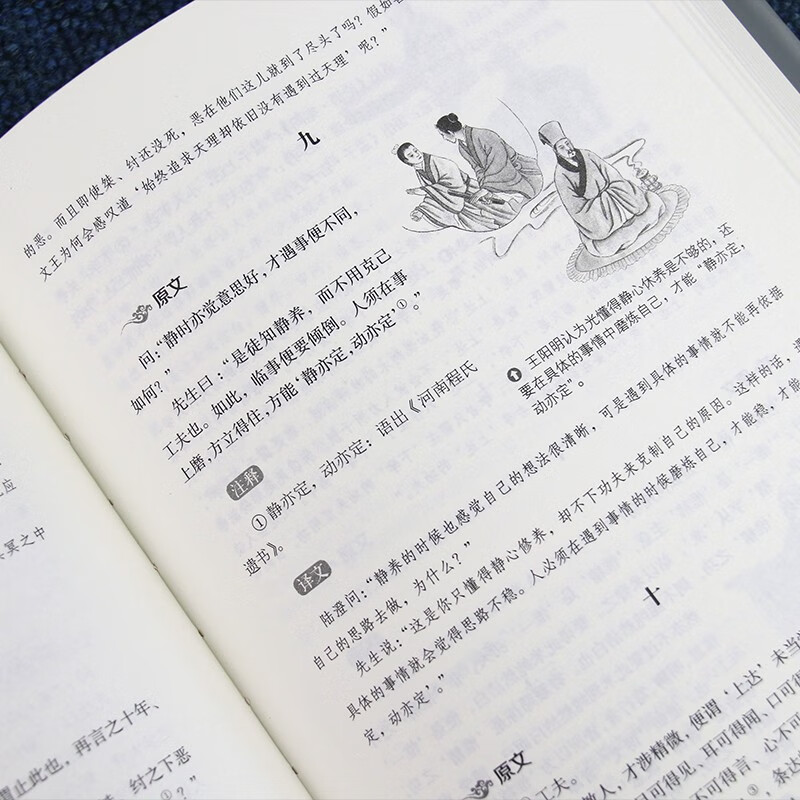 应
冥之中
谓止此也，再言之十年、
纣之下恶
①？”
的恶。而且即使桀、纣还没死，恶在他们这儿就到了尽头了吗？假如
文王为何会感叹道‘始终追求天理却依旧没有遇到过天理’呢？”
九
原文
问：“静时亦觉意思好，才遇事便不同，
如何？”
先生曰：“是徒知静养，而不用克己
工夫也。如此，临事便要倾倒。人须在事
上磨，方立得住，方能‘静亦定，动亦定’①。”
王阳明认为光懂得静心休养是不够的，还
要在具体的事情中磨炼自己，才能“静亦定，
动亦定”。
注释
①静亦定，动亦定：语出《河南程氏
遗书》。
译文
陆澄问：“静养的时候也感觉自己的想法很清晰，可是遇到具体的事情就不能再依据
自己的思路去做，为什么？”
先生说：“这是你只懂得静心修养，却不下功夫来克制自己的原因。这样的话，遇
具体的事情就会觉得思路不稳。人必须在遇到事情的时候磨炼自己，才能稳，才能
定，动亦定’。”
十
原文
①工夫。
人，才涉精微，便谓‘上达’未当
可得见、耳可得闻、口可得
可得言、心不可
③，条达